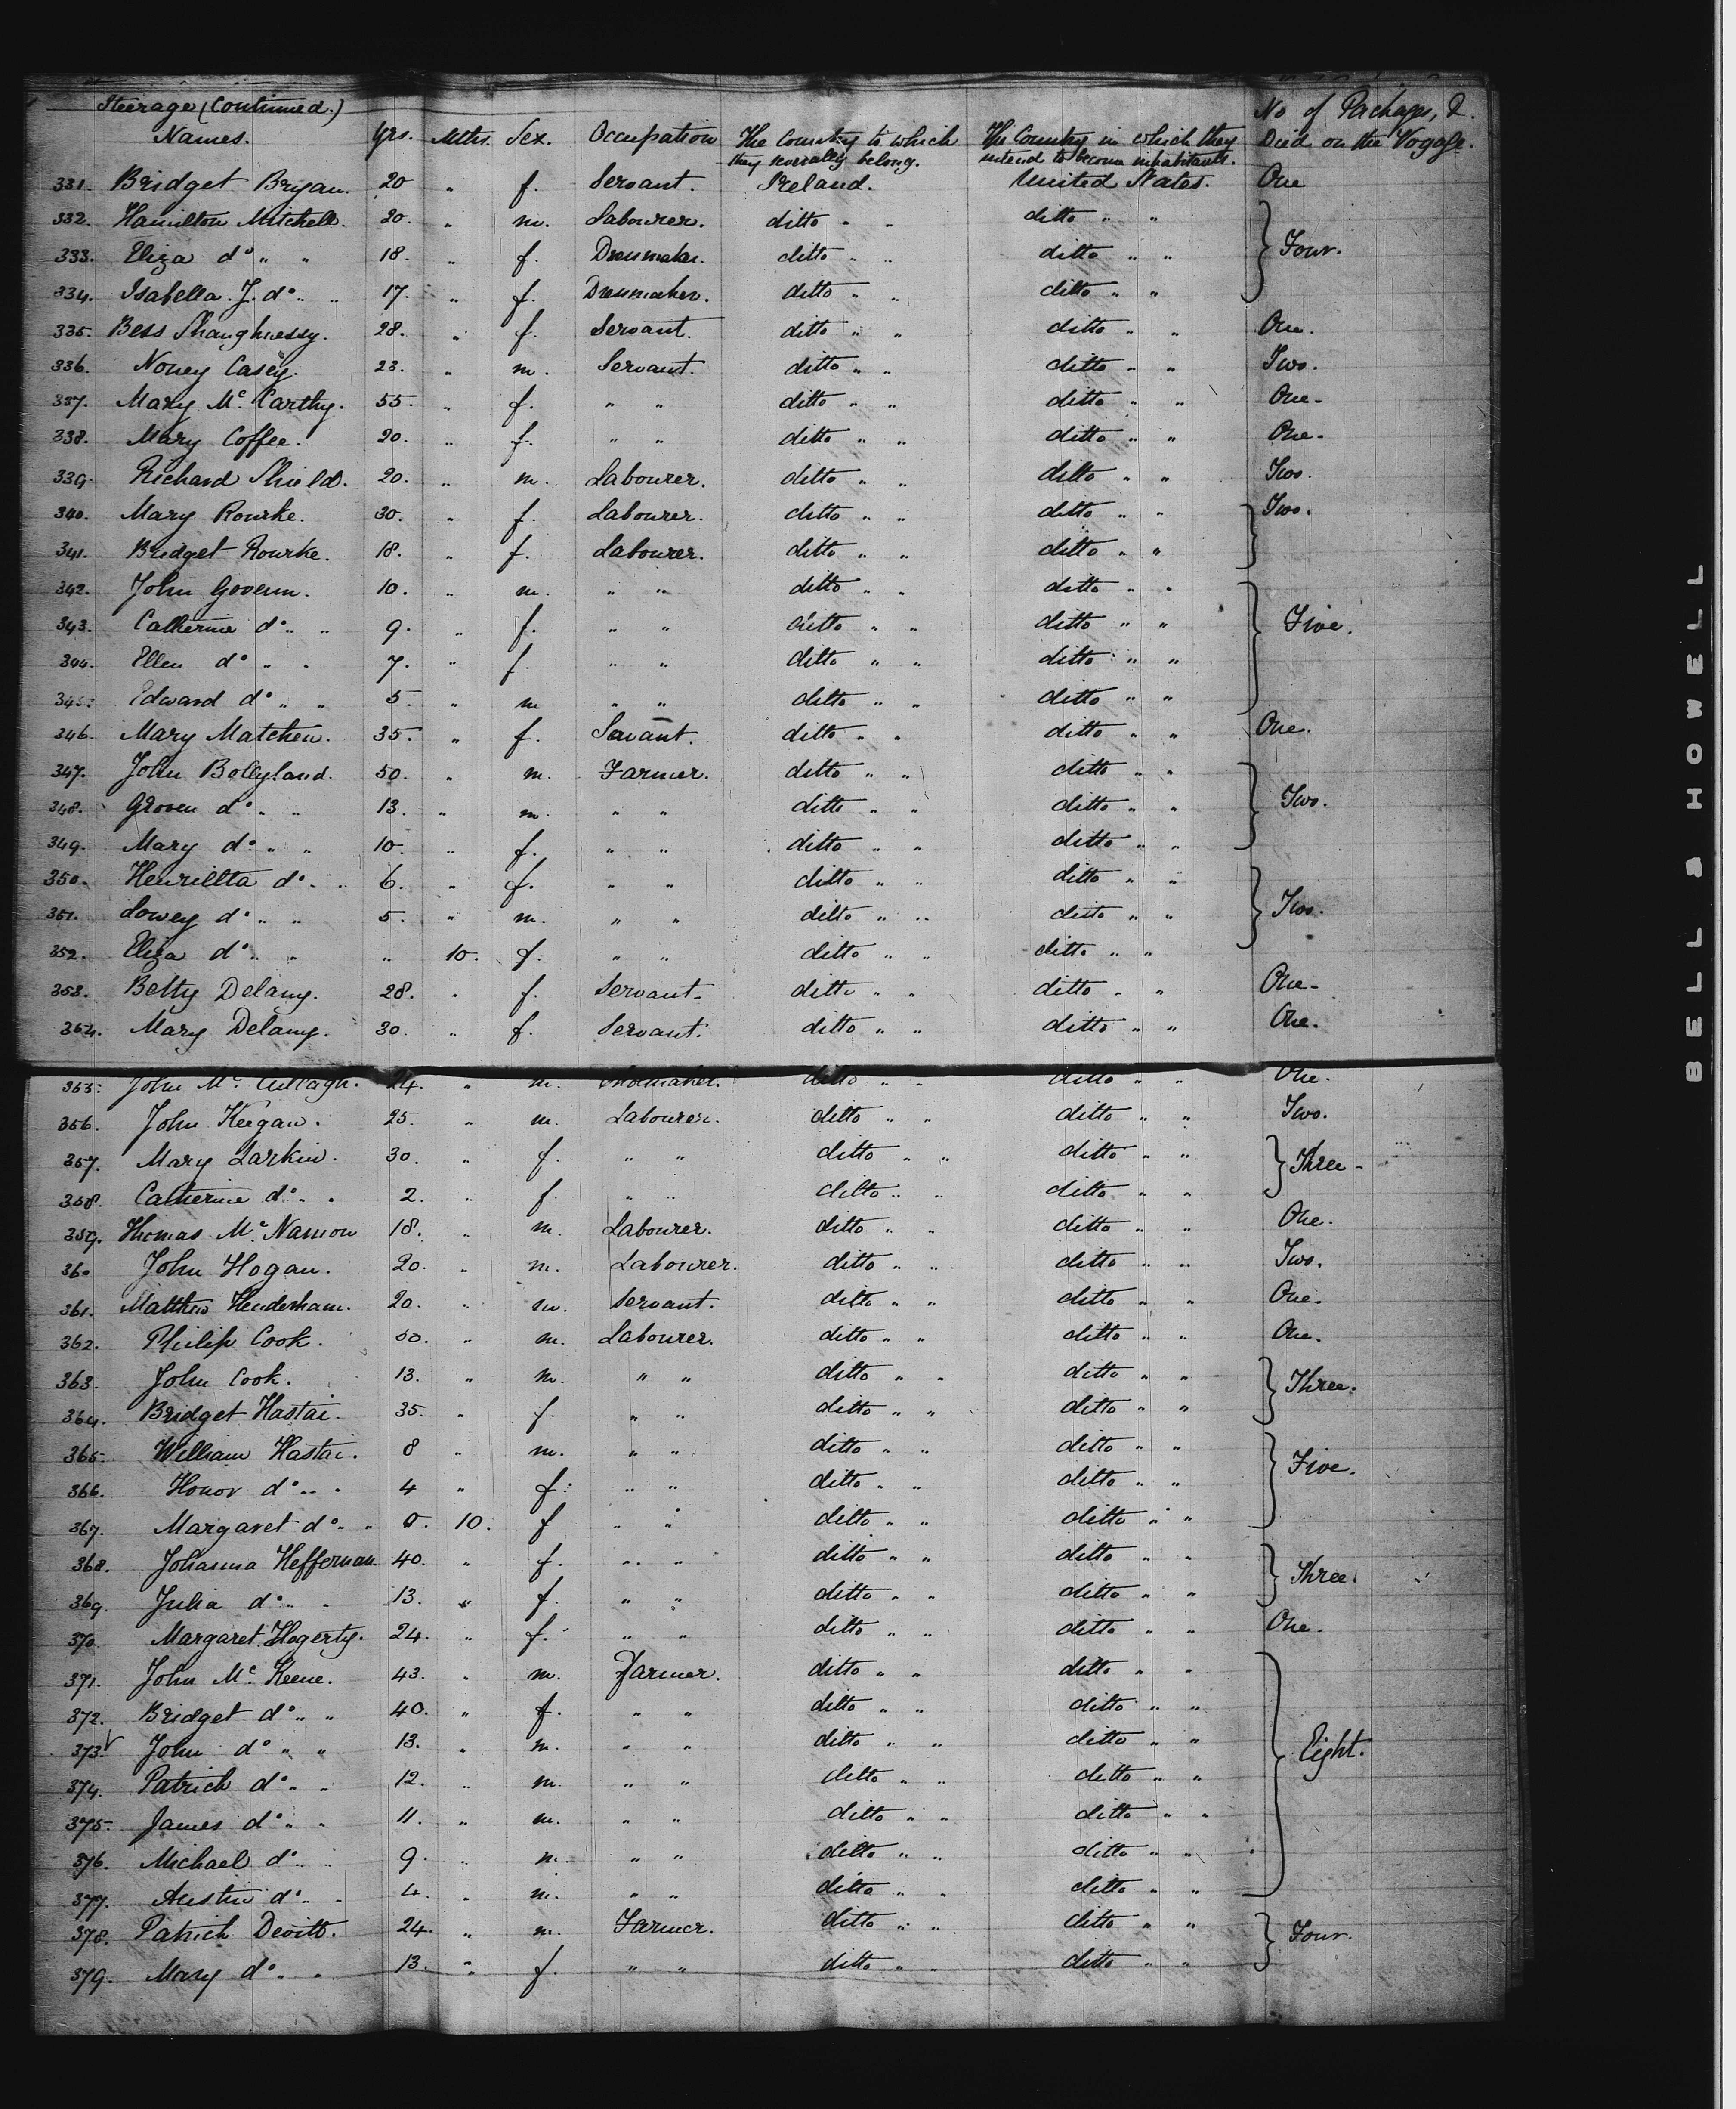 Steerage (Continued.)
No of Packages, &
Names. Yrs. Mths. Sex. Occupation The Country to which The Country in which they Died on the Voyage.
they severally belong. intend to become inhabitants.
331. Bridget Bryan. 20 " f. Servant. Ireland. United States. One
332. Hamilton Mitchell. 20. " m. Labourer. ditto " " ditto " "
333. Eliza do " " 18. " f. Dressmaker. ditto " " ditto " " Four.
334. Isabella. J. do " " 17. " f. Dressmaker. ditto " " ditto " "
335. Bess Shaughnessy. 28. " f. Servant. ditto " " ditto " " One.
336. Noney Casey. 23. " m. Servant. ditto " " ditto " " Two.
337. Mary Mc Carthy. 55. " f. " " ditto " " ditto " " One.
338. Mary Coffee. 20. " f. " " ditto " " ditto " " One.
339. Richard Shield. 20. " m. Labourer. ditto " " ditto " " Two.
340. Mary Rourke. 30. " f. Labourer. ditto " " ditto " " Two.
341. Bridget Rourke. 18. " f. Labourer. ditto " " ditto " "
342. John Govern. 10. " m. " " ditto " " ditto " "
343. Catherine do " " 9. " f. " " ditto " " ditto " " Five.
344. Ellen do " " 7. " f. " " ditto " " ditto " "
345. Edward do " " 5. " m " " ditto " " ditto " "
346. Mary Matchew. 35. " f. Servant. ditto " " ditto " " One.
347. John Bolleyland. 50. " m. Farmer. ditto " " ditto " "
348. Groven do " " 13. " m. " " ditto " " ditto " " Two.
349. Mary do " " 10. " f. " " ditto " " ditto " "
350. Henrietta do " " 6. " f. " " ditto " " ditto " "
351. Lowey do " " 5. " m. " " ditto " " ditto " " Two.
352. Eliza do " " " 10. f. " " ditto " " ditto " "
353. Betty Delany. 28. " f. Servant. ditto " " ditto " " One.
354. Mary Delany. 30. " f. Servant. ditto " " ditto " " One.
355. John Mc Cullagh. 24. " m. Shoemaker. ditto " " ditto " " One.
356. John Keegan. 25. " m. Labourer. ditto " " ditto " " Two.
357. Mary Larkin. 30. " f. " " ditto " " ditto " " Three.
358. Catherine do " " 2. " f. " " ditto " " ditto " "
359. Thomas Mc Namon 18. " m. Labourer. ditto " " ditto " " One.
360 John Hogan. 20. " m. Labourer. ditto " " ditto " " Two.
361. Matthew Hendesham. 20. " m. Servant. ditto " " ditto " " One.
362. Philip Cook. 50. " m. Labourer. ditto " " ditto " " One.
363. John Cook. 13. " m. " " ditto " " ditto " " Three.
364. Bridget Hastai. 35. " f. " " ditto " " ditto " "
365. William Hastai. 8 " m. " " ditto " " ditto " " Five.
366. Honor do " " 4 " f. " " ditto " " ditto " "
367. Margaret do " " 0. 10. f " " ditto " " ditto " "
368. Johanna Heffernan 40. " f. " " ditto " " ditto " " Three.
369. Julia do " " 13. " f. " " ditto " " ditto " "
370 Margaret Hogerty. 24. " f. " " ditto " " ditto " " One.
371. John Mc Keene. 43. " m. Farmer. ditto " " ditto " "
372. Bridget do " " 40. " f. " " ditto " " ditto " "
373. John do " " 13. " m. " " ditto " " ditto " " Eight.
374. Patrick do " " 12. " m. " " ditto " " ditto " "
375. James do " " 11. " m. " " ditto " " ditto " "
376. Michael do " " 9. " m. " " ditto " " ditto " "
377. Austin do " " 4. " m. " " ditto " " ditto " "
378. Patrick Devitt. 24. " m. Farmer. ditto " " ditto " " Four.
379. Mary do " " 13. " f. " " ditto " " ditto " "
BELL & HOWELL